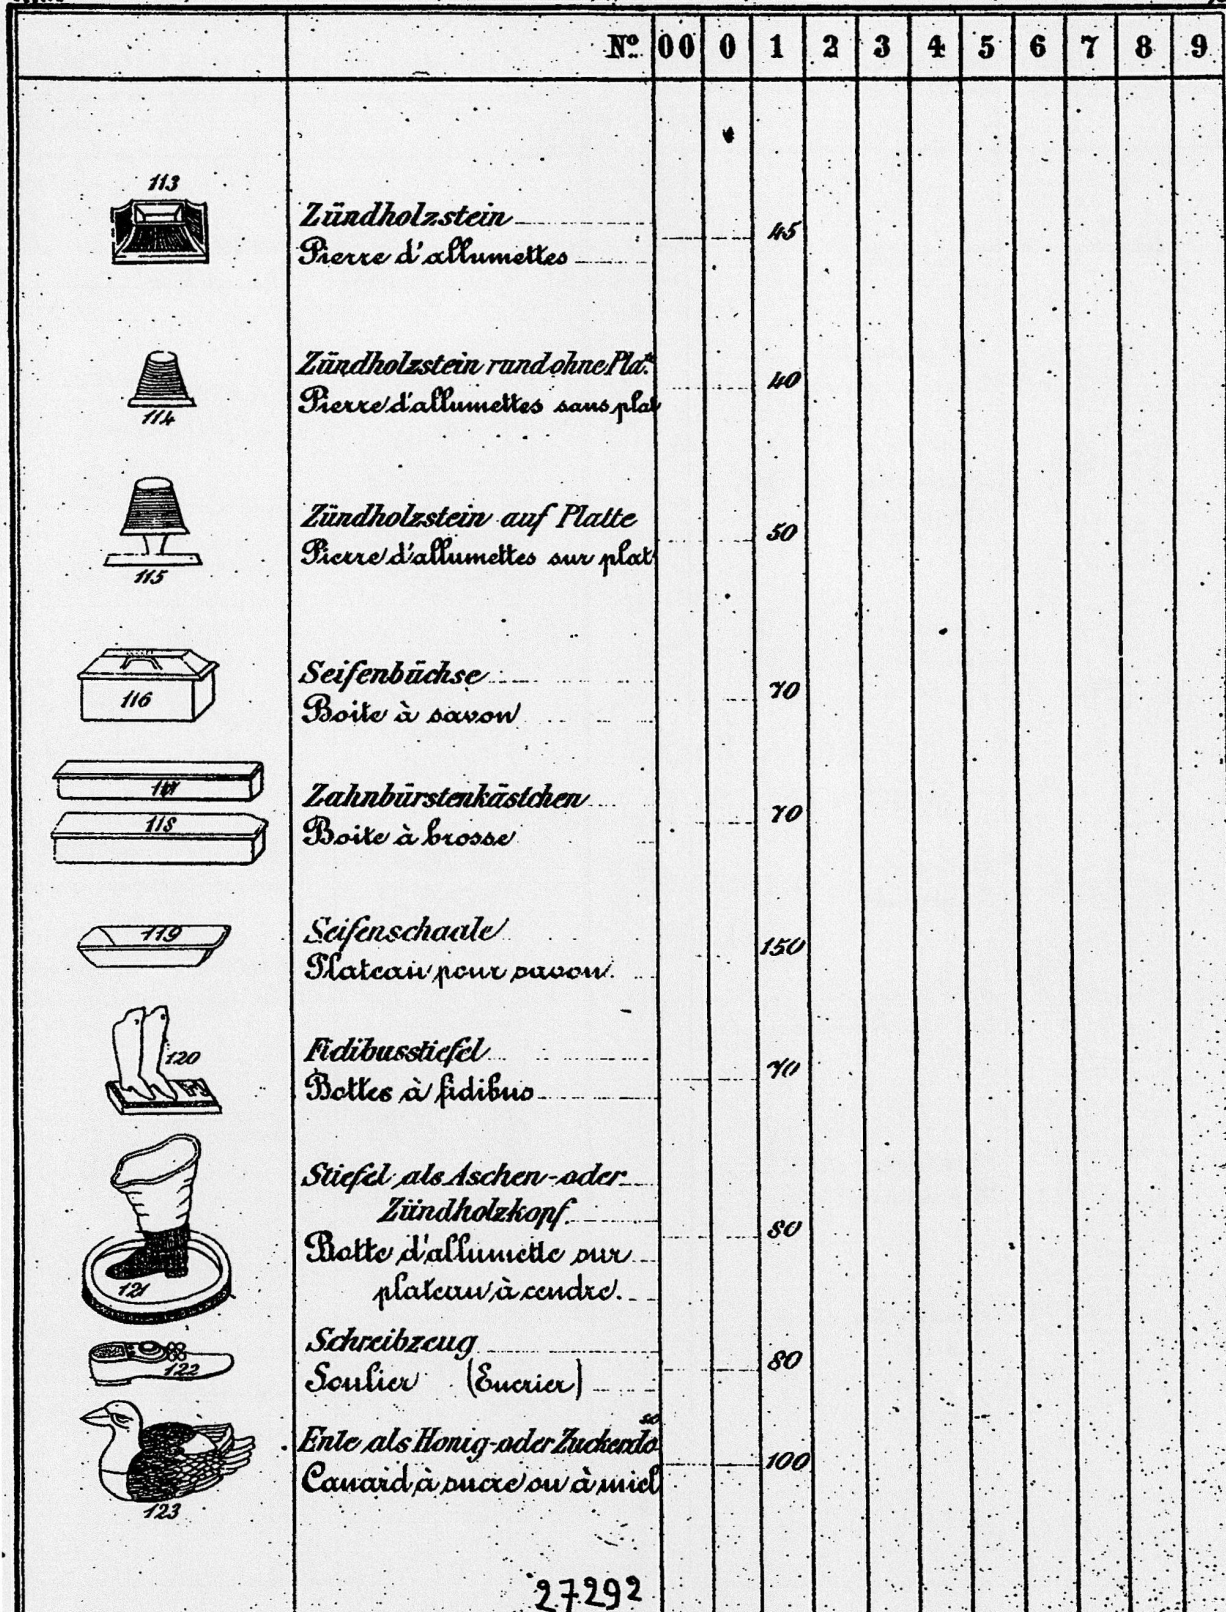 Nº 00 0 1 2 3 4 5 6 7 8 9
113
Zündholzstein 45
Pierre d'allumettes
Zündholzstein rund ohne Pla.te 40
Pierre d'allumettes sans plat
114
Zündholzstein auf Platte 50
Pierre d'allumettes sur plat
115
Seifenbüchse
116 70
Boite à savon
117
Zahnbürstenkästchen 70
118
Boite à brosse
119
Seifenschaale 150
Plateau pour savon.
Fidibusstiefel
120 70
Bottes à fidibus
Stiefel als Aschen- oder
Zündholzkopf. 80
Botte d'allumette sur
121
plateau à cendre.
Schreibzeug 80
122
Soulier (Encrier)
Ente als Honig- oder Zuckerdose 100
Canard à sucre ou à miel
123
27292